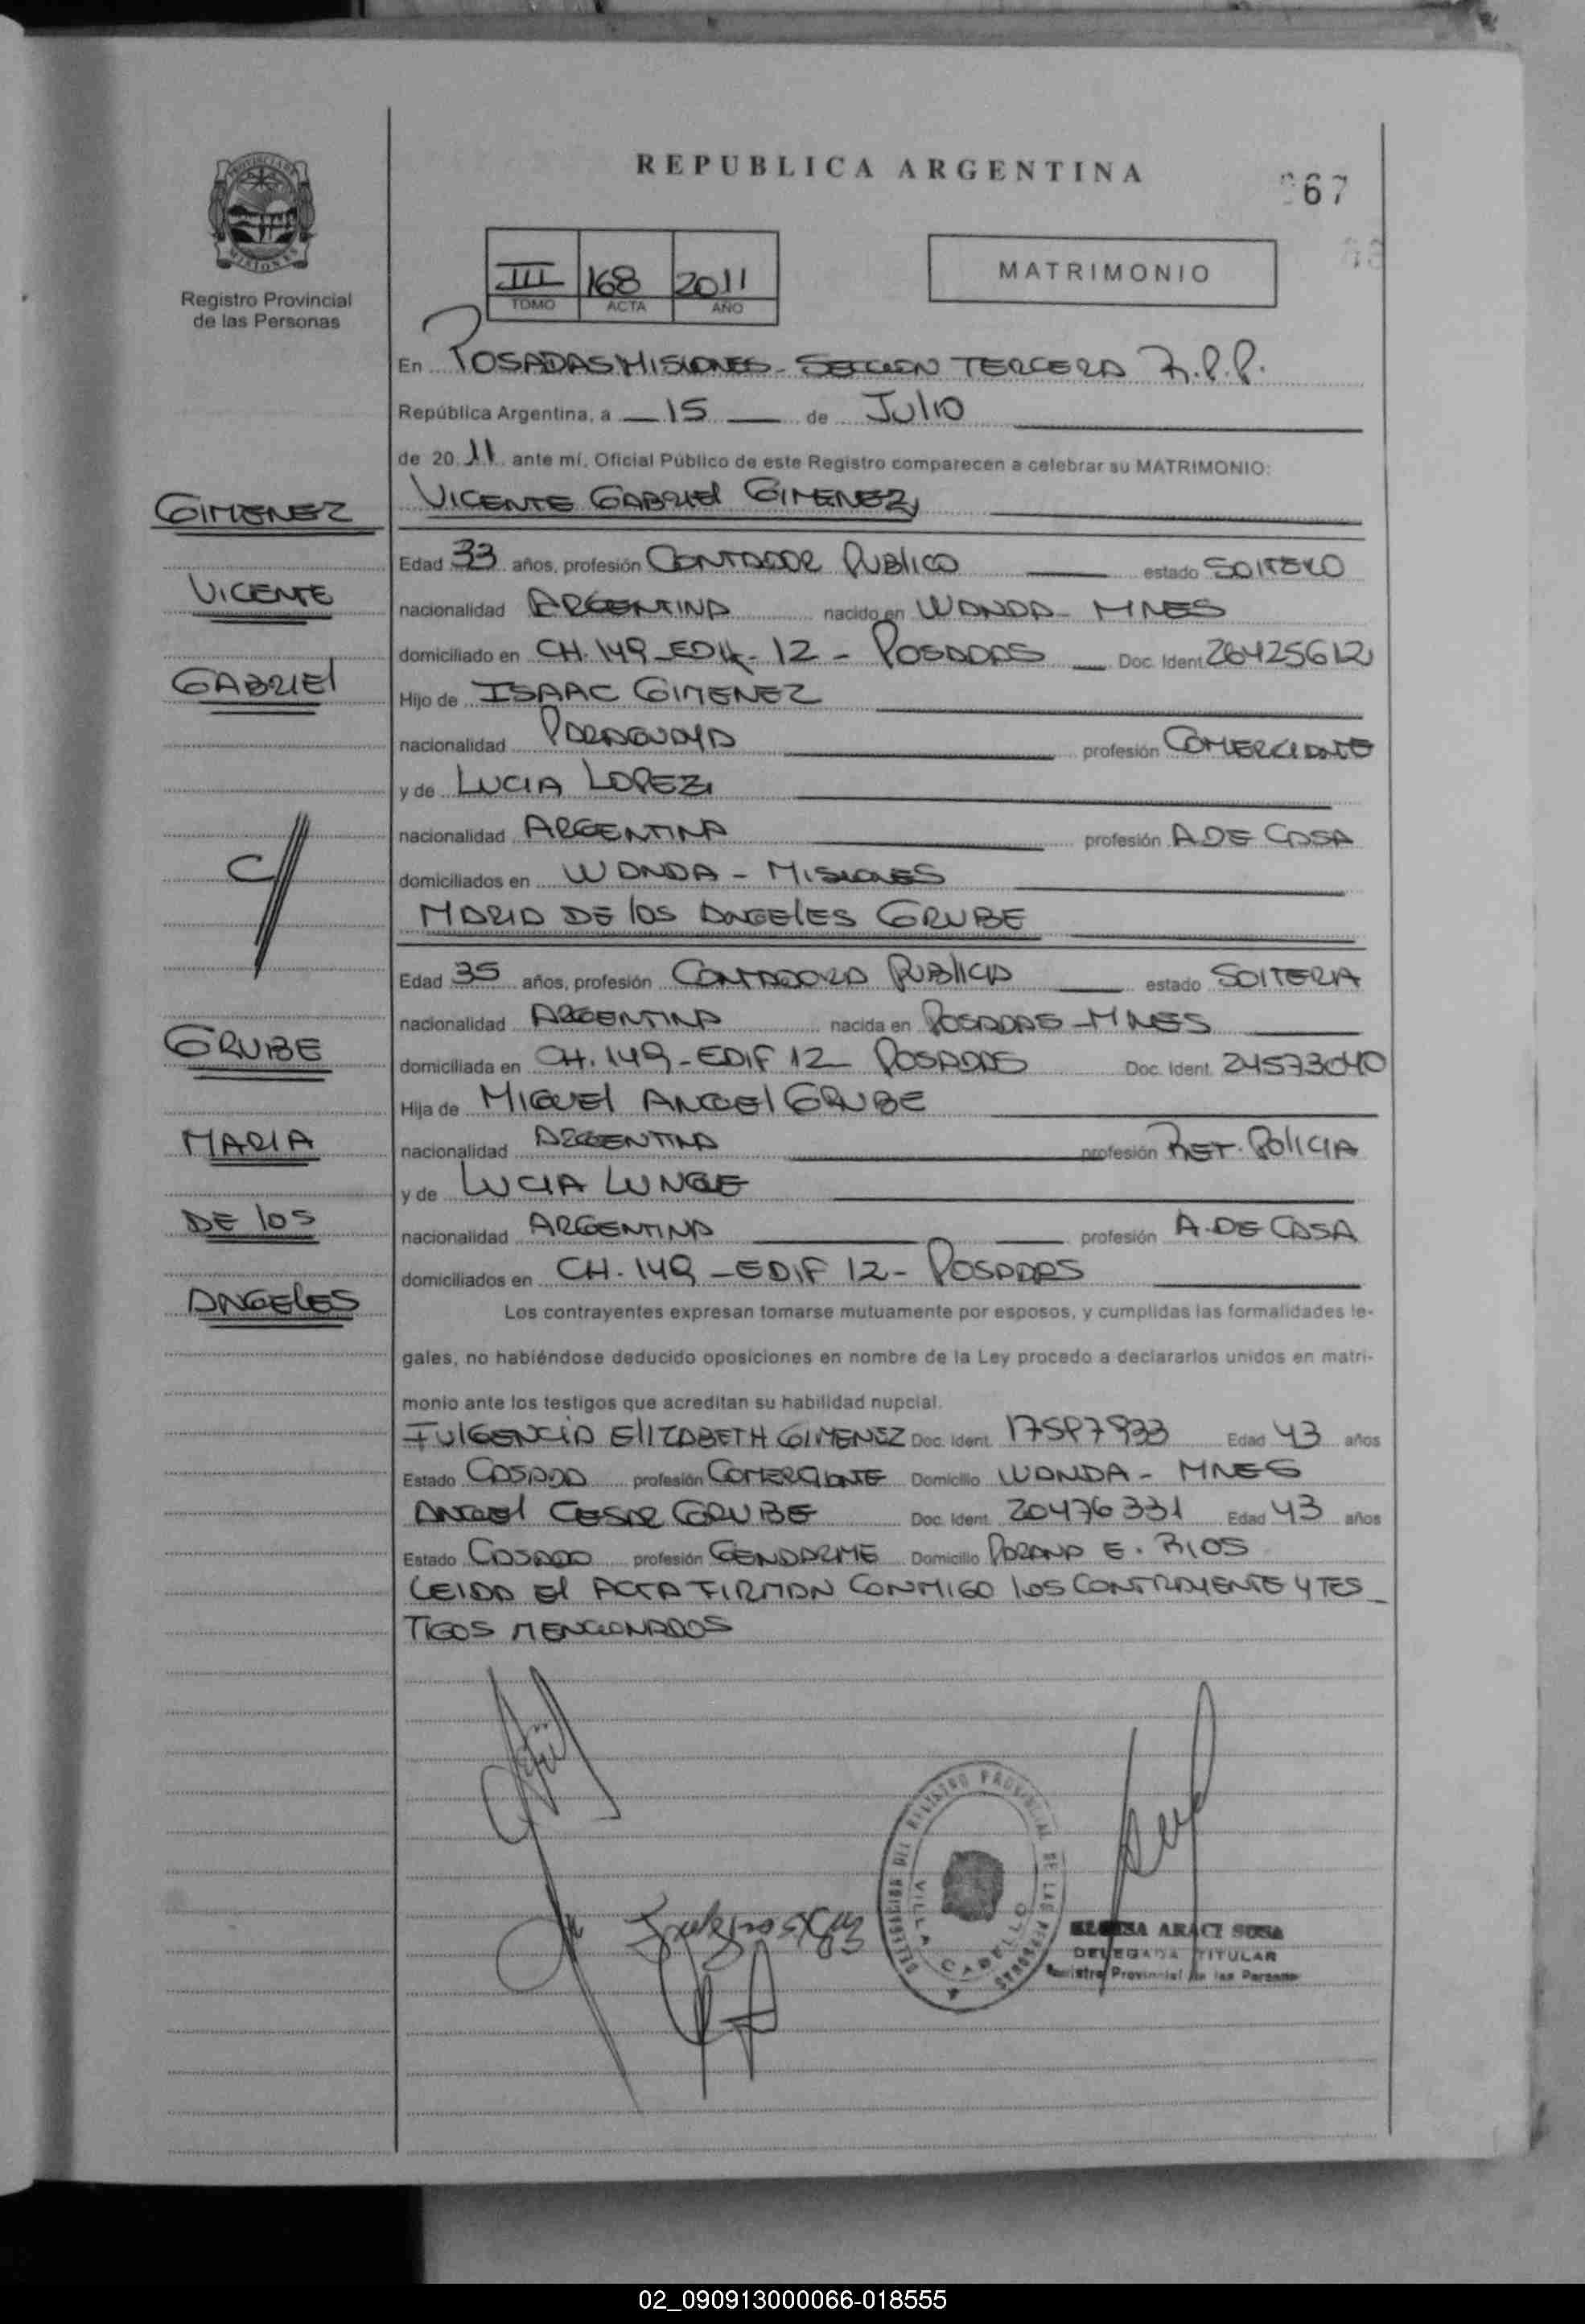 REPUBLICA ARGENTINA
67
Registro Provincial
de las Personas
III 168 2011
TOMO ACTA AÑO
MATRIMONIO
En POSADAS MISIONES - SECCION TERCERA R.P.P.
República Argentina, a 15 de Julio
de 2011 ante mí, Oficial Público de este Registro comparecen a celebrar su MATRIMONIO:
GIMENEZ
VICENTE GABRIEL GIMENEZ
Edad 33 años, profesión CONTADOR PUBLICO estado SOLTERO
VICENTE
nacionalidad ARGENTINA nacido en WANDA - MNES
domiciliado en CH. 149 - EDIF - 12 - POSADAS Doc. Ident. 26425612
GABRIEL
Hijo de ISAAC GIMENEZ
nacionalidad PARAGUAYA profesión COMERCIANTE
y de LUCIA LOPEZ
nacionalidad ARGENTINA profesión A DE CASA
C/
domiciliados en WANDA - MISIONES
MARIA DE LOS ANGELES GRUBE
Edad 35 años, profesión CONTADORA PUBLICA estado SOLTERA
nacionalidad ARGENTINA nacida en POSADAS - MNES
GRUBE
domiciliada en CH. 149 - EDIF 12 - POSADAS Doc. Ident. 24573040
Hija de MIGUEL ANGEL GRUBE
MARIA
nacionalidad ARGENTINA profesión RET. POLICIA
y de LUCIA LUNGE
DE LOS
nacionalidad ARGENTINA profesión A. DE CASA
domiciliados en CH. 149 - EDIF 12 - POSADAS
ANGELES
Los contrayentes expresan tomarse mutuamente por esposos, y cumplidas las formalidades le-
gales, no habiéndose deducido oposiciones en nombre de la Ley procedo a declararlos unidos en matri-
monio ante los testigos que acreditan su habilidad nupcial.
FULGENCIA ELIZABETH GIMENEZ Doc. Ident. Edad 43 años
Estado CASADA profesión COMERCIANTE Domicilio WANDA - MNES
ANGEL CESAR GRUBE Doc. Ident. 20476331 Edad 43 años
Estado CASADO profesión GENDARME Domicilio PARANA E. RIOS
LEIDA EL ACTA FIRMAN CONMIGO LOS CONTRAYENTE Y TES
TIGOS MENCIONADOS
DELEGACION DEL REGISTRO PROVINCIAL DE LAS PERSONAS
VILLA CABELLO
ARACI SOSA
DELEGADA TITULAR
Registro Provincial de las Personas
02_090913000066-018555